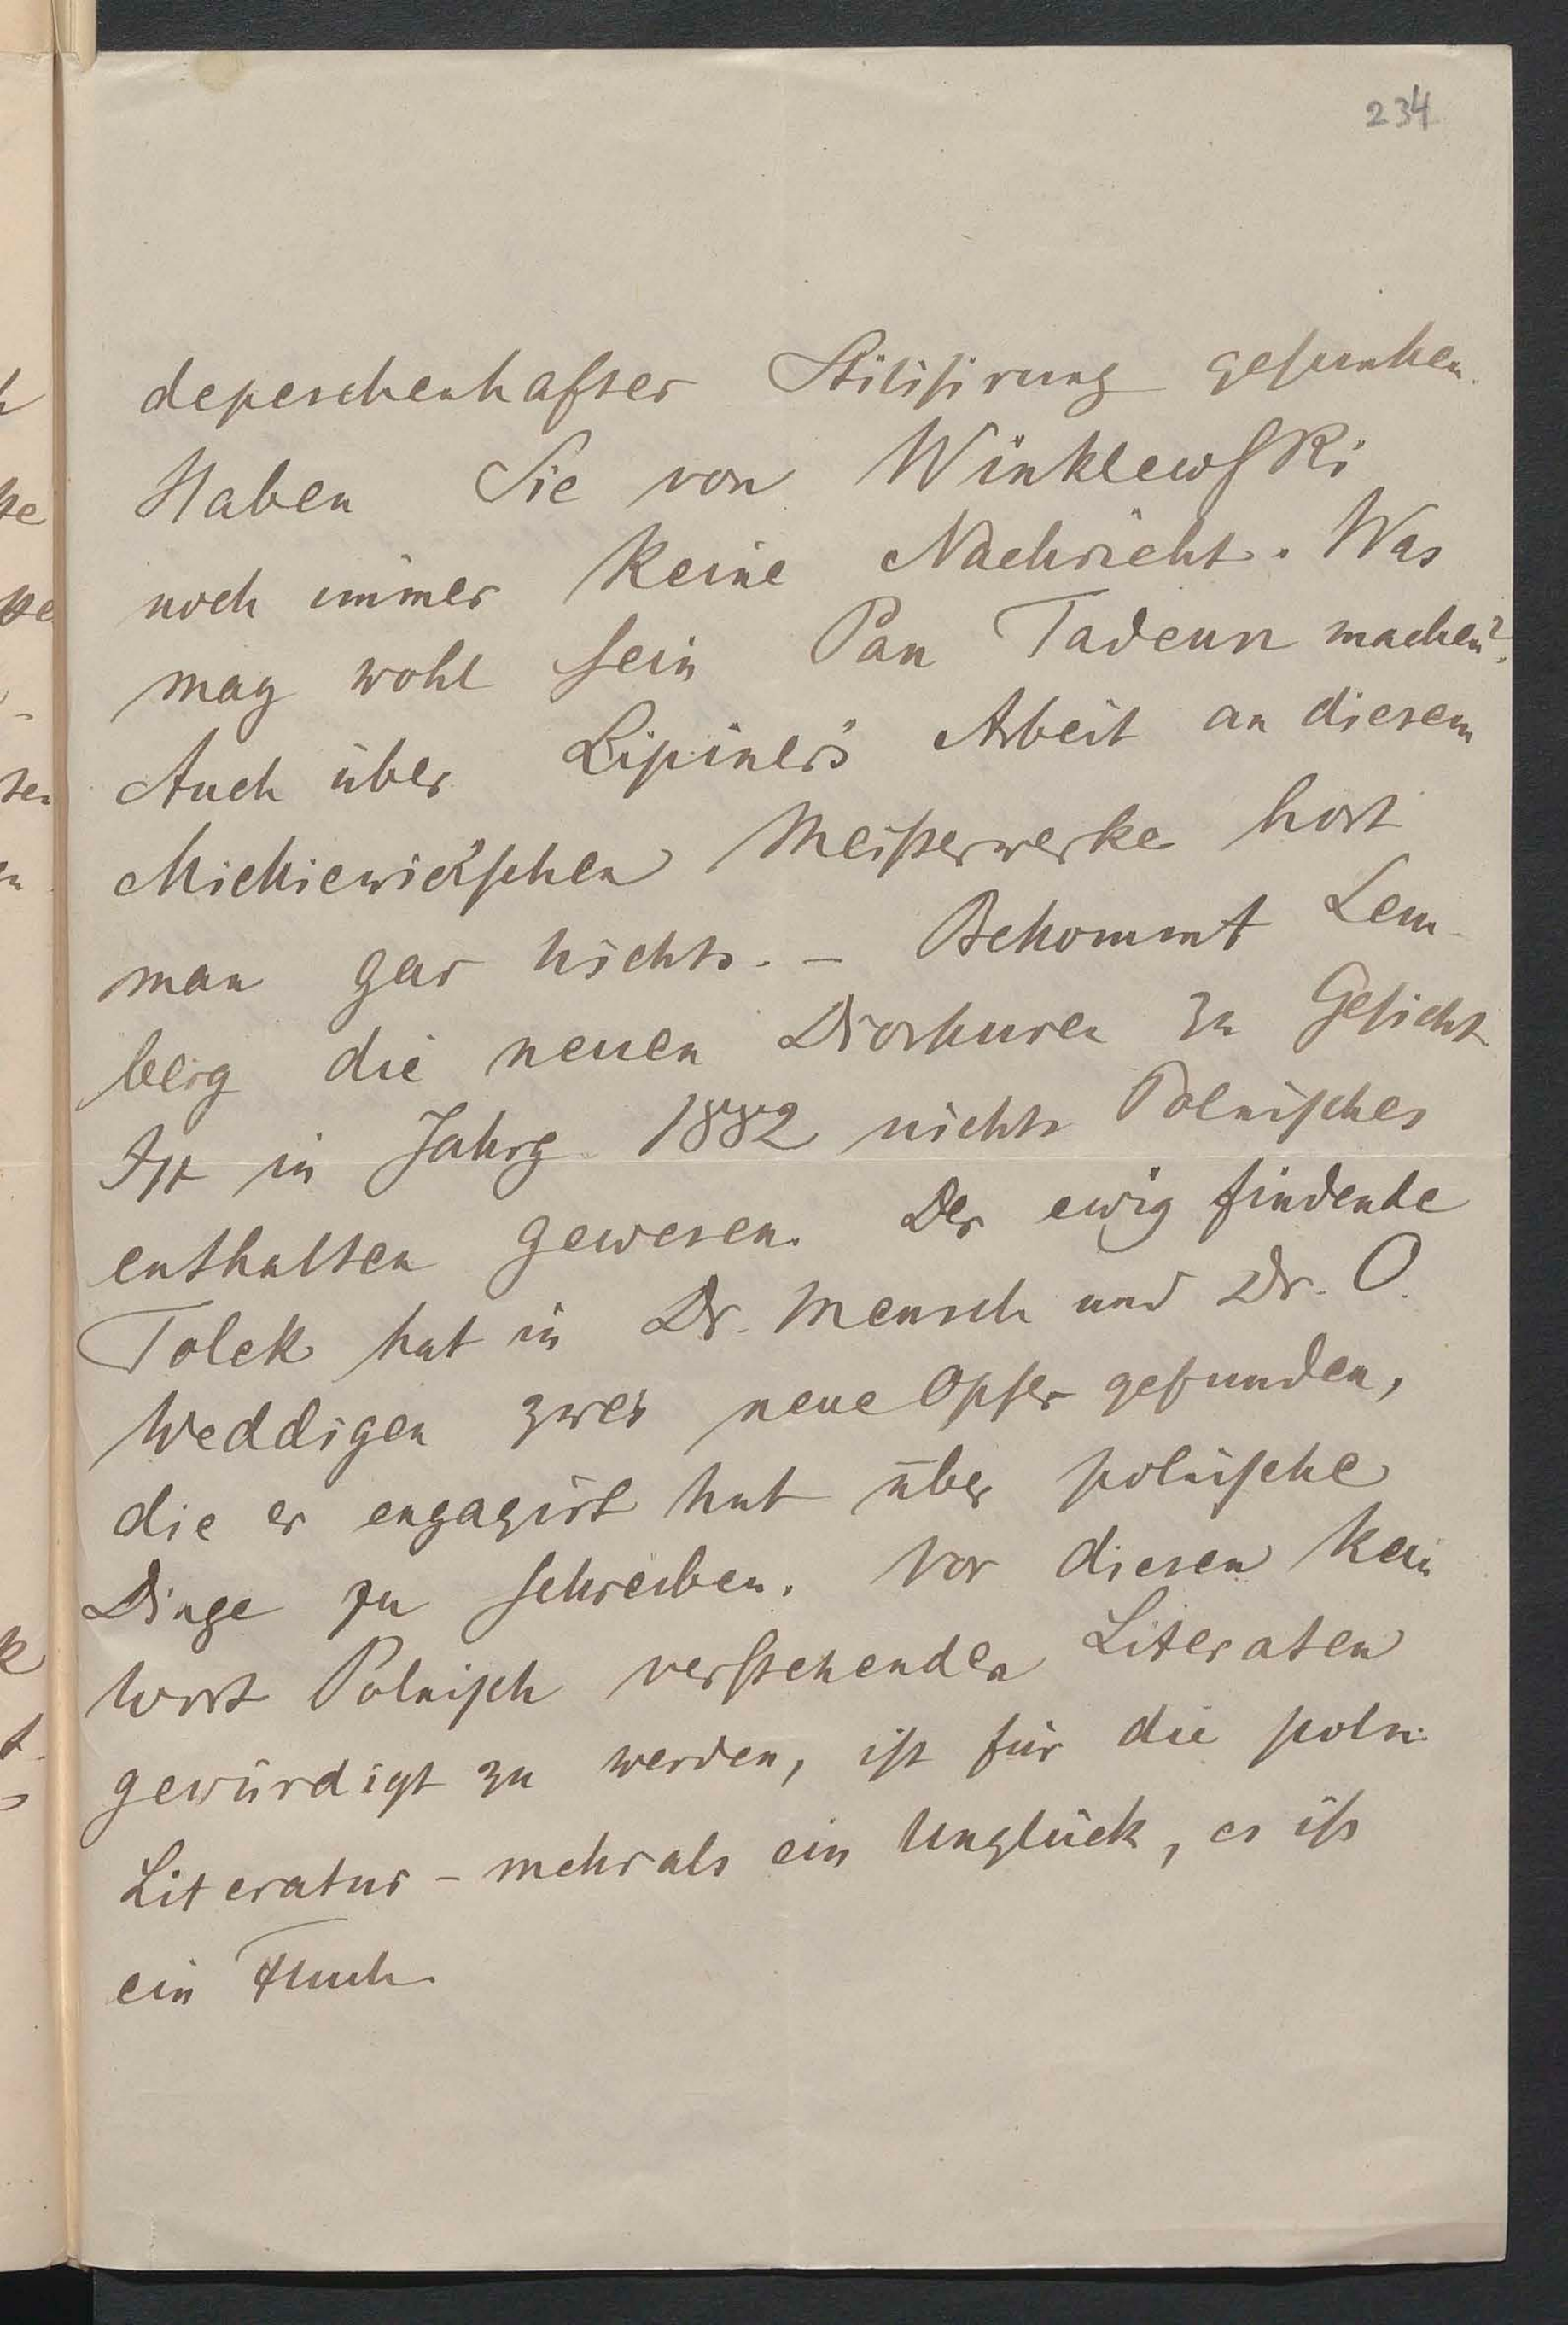 234
depeschenhafter Stilisirung gesunken.
Haben Sie von Winklewski
noch immer keine Nachricht. Was
mag wohl sein Pan Tadeusz machen?
Auch über Lipiner's Arbeit an diesem
Mickiewicz'schen Meisterwerke hört
man gar nichts. – Bekommt Lem-
berg die neuen Dioskuren zu Gesicht
Ist in Jahrg 1882 nichts Polnisches
enthalten gewesen. Der ewig findende
Tolek hat in Dr. Mensch und Dr. O.
Weddigen zwei neue Opfer gefunden,
die er engagirt hat über polnische
Dinge zu schreiben. Von diesen kein
Wort Polnisch verstehenden Literaten
gewürdigt zu werden, ist für die poln.
Literatur – mehr als ein Unglück, es ist
ein Fluch.